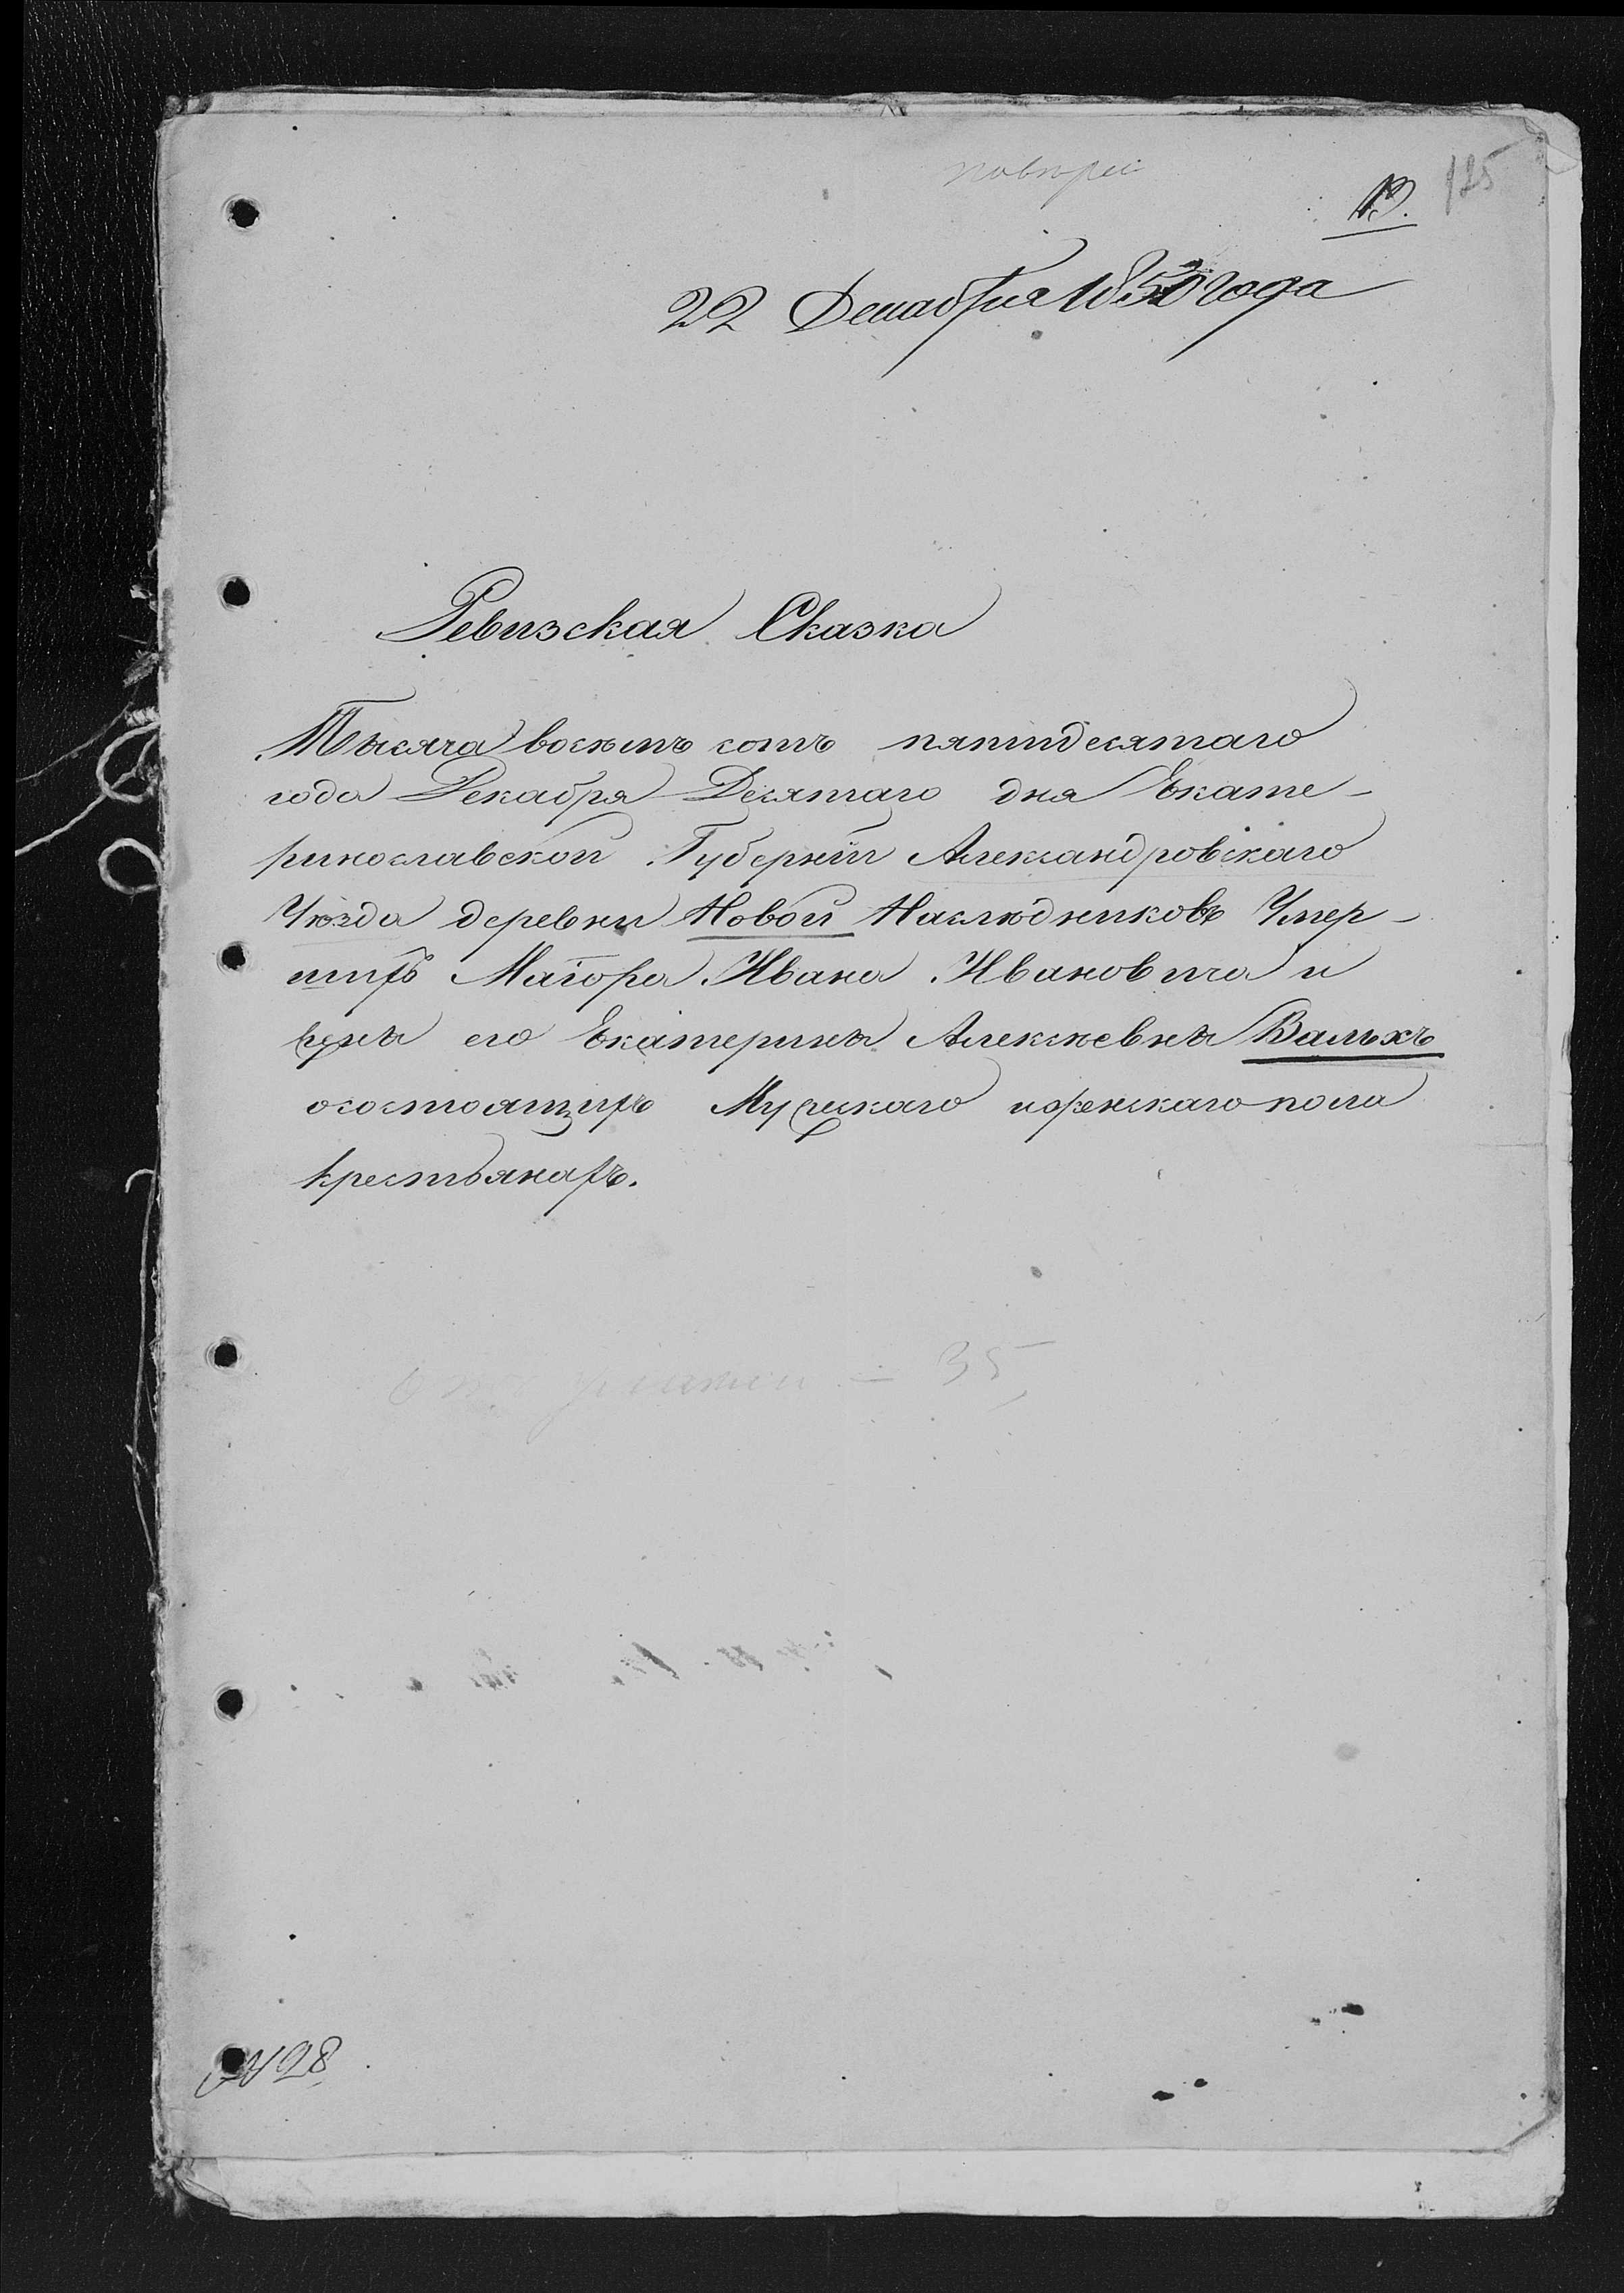 125
13.
22 Декабря 1850 года
Ревизская Сказка
Тысяча восемь сотъ пятидесятаго
года Декабря Десятаго дня Екате-
ринославской Губерніи Александровскаго
Уѣзда деревни Новой Наслѣдниковъ Умер-
шихъ Маіора Ивана Ивановича и
жены его Екатерины Алексѣевны Вальхъ
о состоящихъ Мужскаго и женскаго пола
крестьянахъ.
35
№ 28